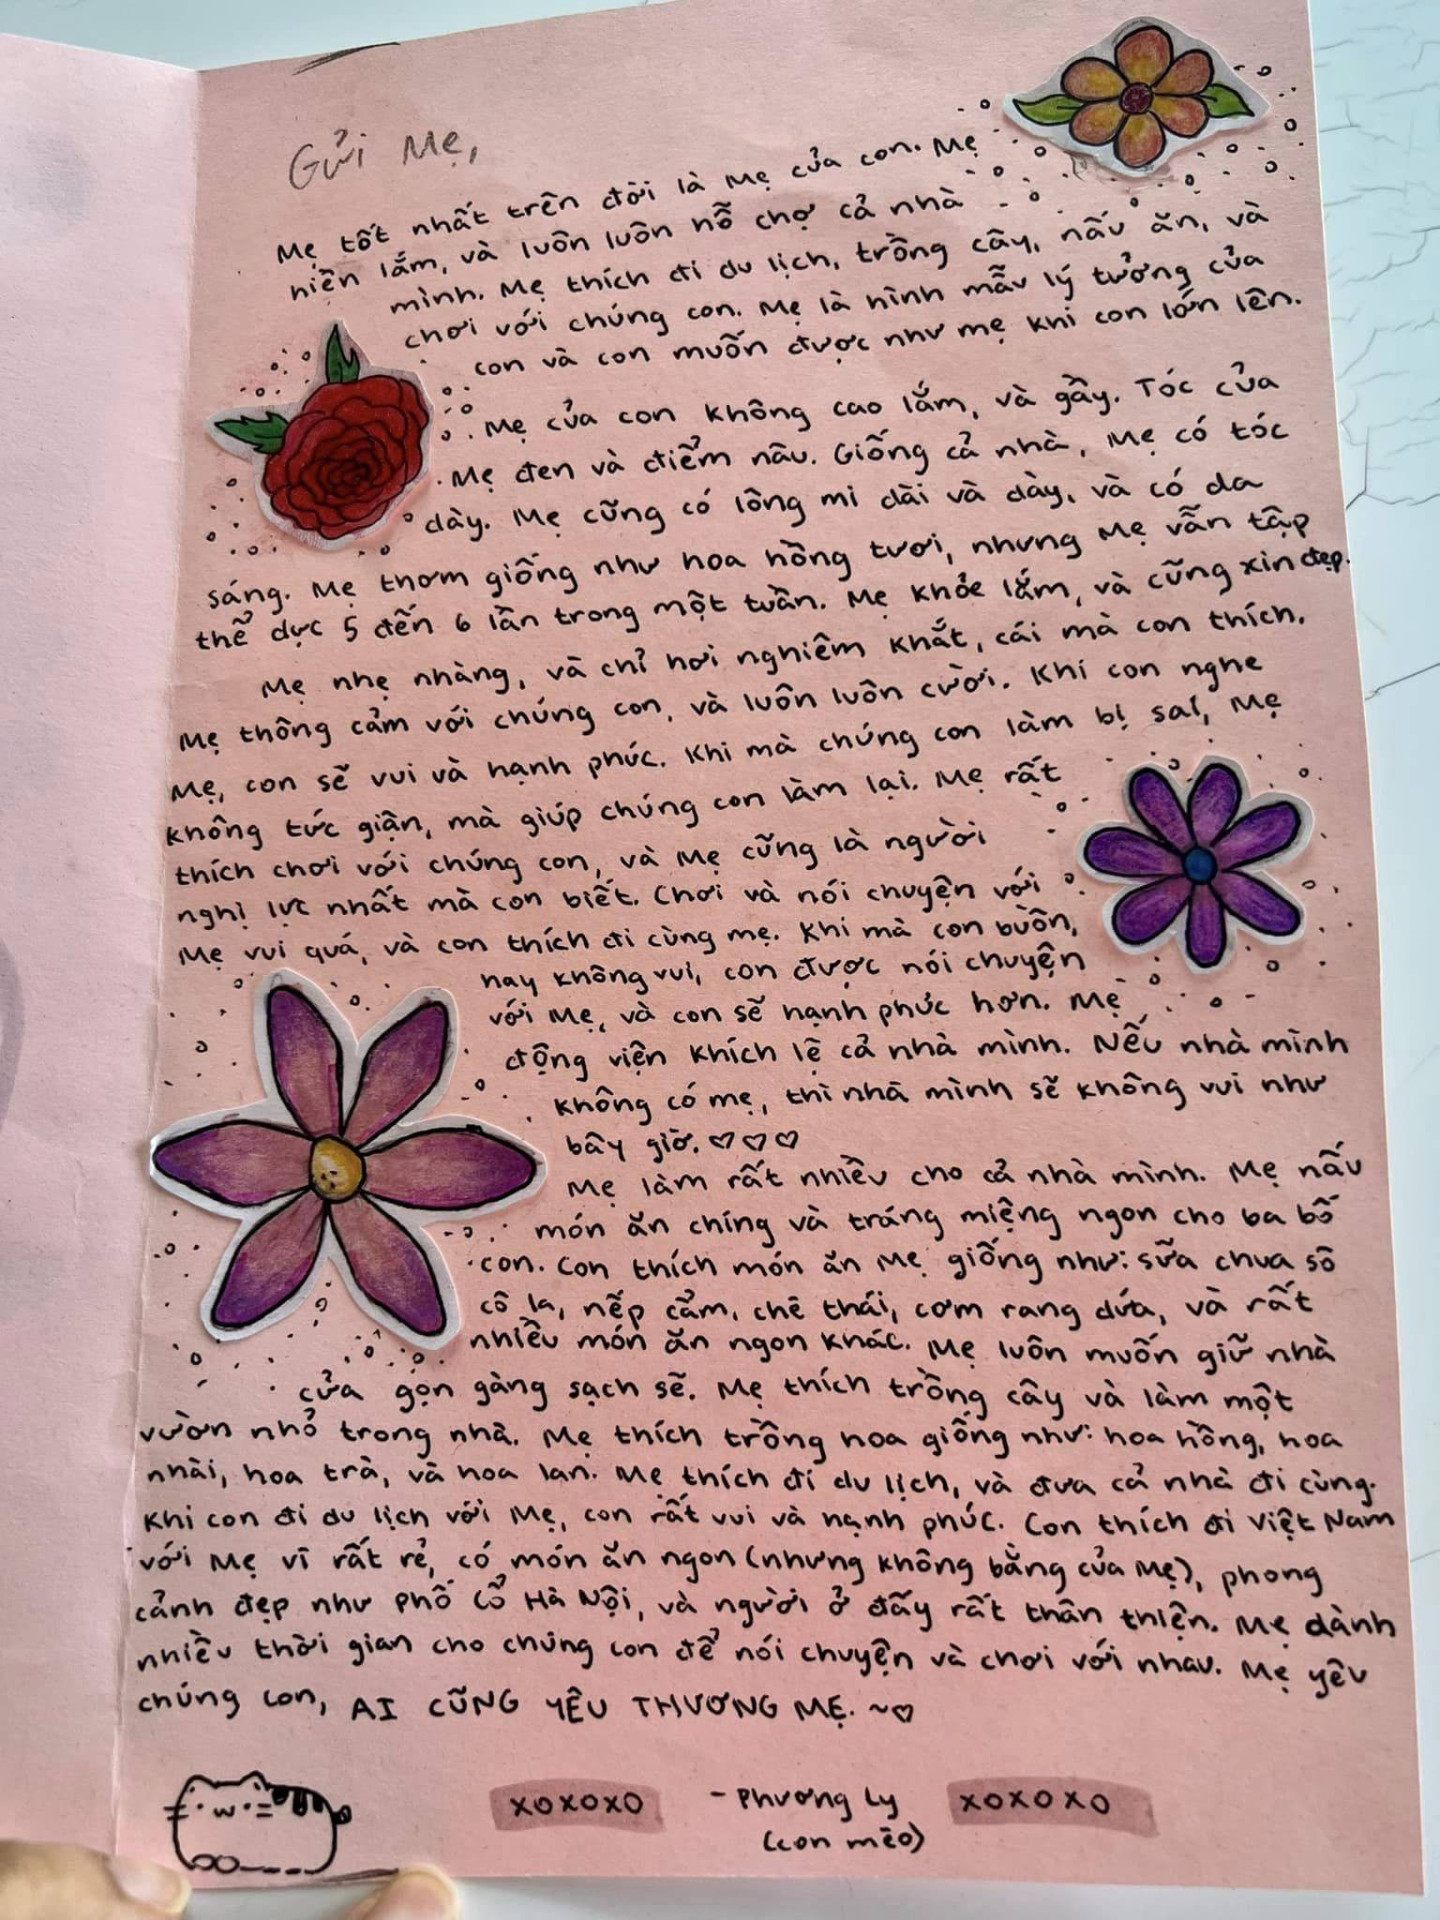 Gửi Mẹ,
Mẹ tốt nhất trên đời là Mẹ của con. Mẹ
hiền lắm, và luôn luôn hỗ chợ cả nhà
mình. Mẹ thích đi du lịch, trồng cây, nấu ăn, và
chơi với chúng con. Mẹ là hình mẫu lý tưởng của
con và con muốn được như mẹ khi con lớn lên.
Mẹ của con không cao lắm, và gầy. Tóc của
Mẹ đen và điểm nâu. Giống cả nhà, Mẹ có tóc
dày. Mẹ cũng có lông mi dài và dày, và có da
sáng. Mẹ thơm giống như hoa hồng tươi, nhưng Mẹ vẫn tập
thể dực 5 đến 6 lần trong một tuần. Mẹ khỏe lắm, và cũng xin đẹp.
Mẹ nhẹ nhàng, và chỉ hơi nghiêm khắt, cái mà con thích.
Mẹ thông cảm với chúng con, và luôn luôn cười. Khi con nghe
Mẹ, con sẽ vui và hạnh phúc. Khi mà chúng con làm bị sai, Mẹ
không tức giận, mà giúp chúng con làm lại. Mẹ rất
thích chơi với chúng con, và Mẹ cũng là người
nghị lực nhất mà con biết. Chơi và nói chuyện với
Mẹ vui quá, và con thích đi cùng mẹ. Khi mà con buồn,
hay không vui, con được nói chuyện
với Mẹ, và con sẽ hạnh phúc hơn. Mẹ
động viện khích lệ cả nhà mình. Nếu nhà mình
không có mẹ, thì nhà mình sẽ không vui như
bây giờ. ♡♡♡
Mẹ làm rất nhiều cho cả nhà mình. Mẹ nấu
món ăn chíng và tráng miệng ngon cho ba bố
con. Con thích món ăn Mẹ giống như: sữa chua sô
cô la, nếp cẩm, chè thái, cơm rang dứa, và rất
nhiều món ăn ngon khác. Mẹ luôn muốn giữ nhà
cửa gọn gàng sạch sẽ. Mẹ thích trồng cây và làm một
vườn nhỏ trong nhà. Mẹ thích trồng hoa giống như: hoa hồng, hoa
nhài, hoa trà, và hoa lan. Mẹ thích đi du lịch, và đưa cả nhà đi cùng.
Khi con đi du lịch với Mẹ, con rất vui và hạnh phúc. Con thích đi Việt Nam
với Mẹ vì rất rẻ, có món ăn ngon (nhưng không bằng của Mẹ), phong
cảnh đẹp như Phố Cổ Hà Nội, và người ở đấy rất thân thiện. Mẹ dành
nhiều thời gian cho chúng con để nói chuyện và chơi với nhau. Mẹ yêu
chúng con, AI CŨNG YÊU THƯƠNG MẸ. ~♡
XOXOXO - Phương Ly XOXOXO
(con mèo)